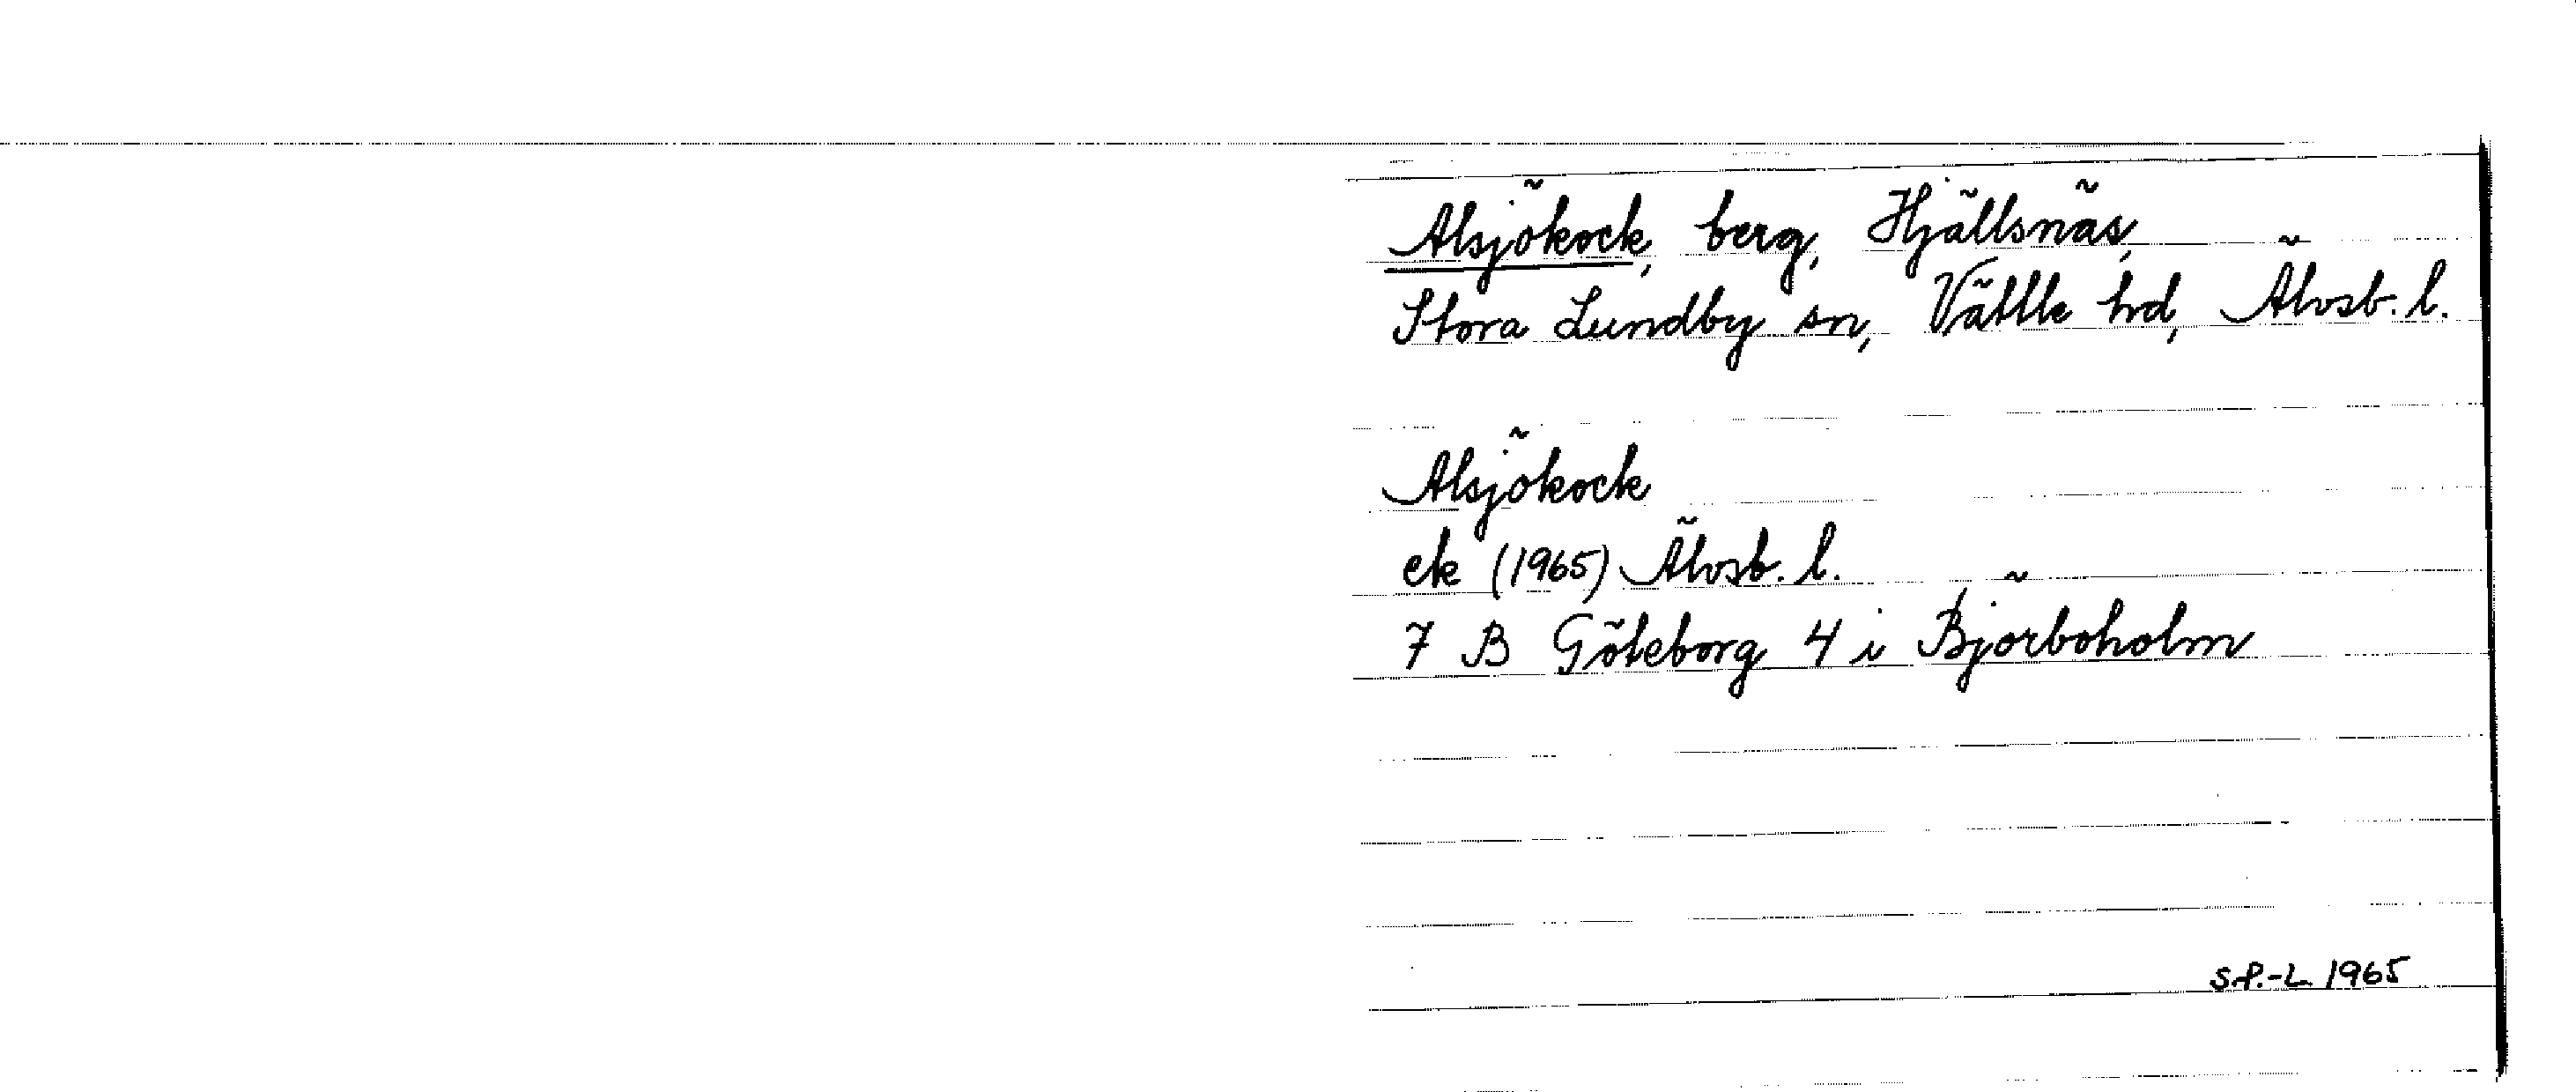 Alsjökock, berg, Hjällsnäs,
Stora Lundby sn, Vättle hd, Älvsb. l.
Alsjökock
ek (1965) Älvsb. l.
7 B Göteborg 4 i Björboholm
S.P.-L 1965